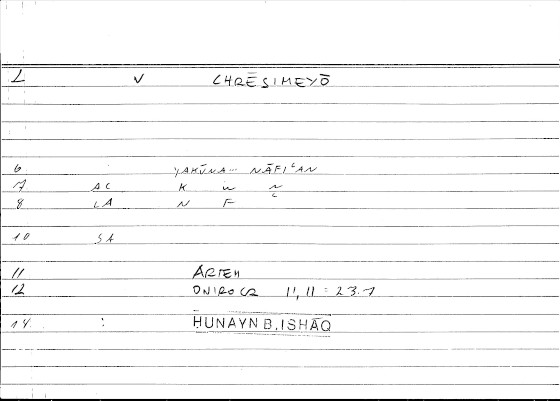 1 V CHRĒSIMEYŌ
6 YAKŪNA... NĀFIʿAN
7 AC K W N
8 LA N F ʿ
10 SA
11 ARTEM
12 ONIROCR 11,11 = 23.1
14 : HUNAYN B. ISHĀQ